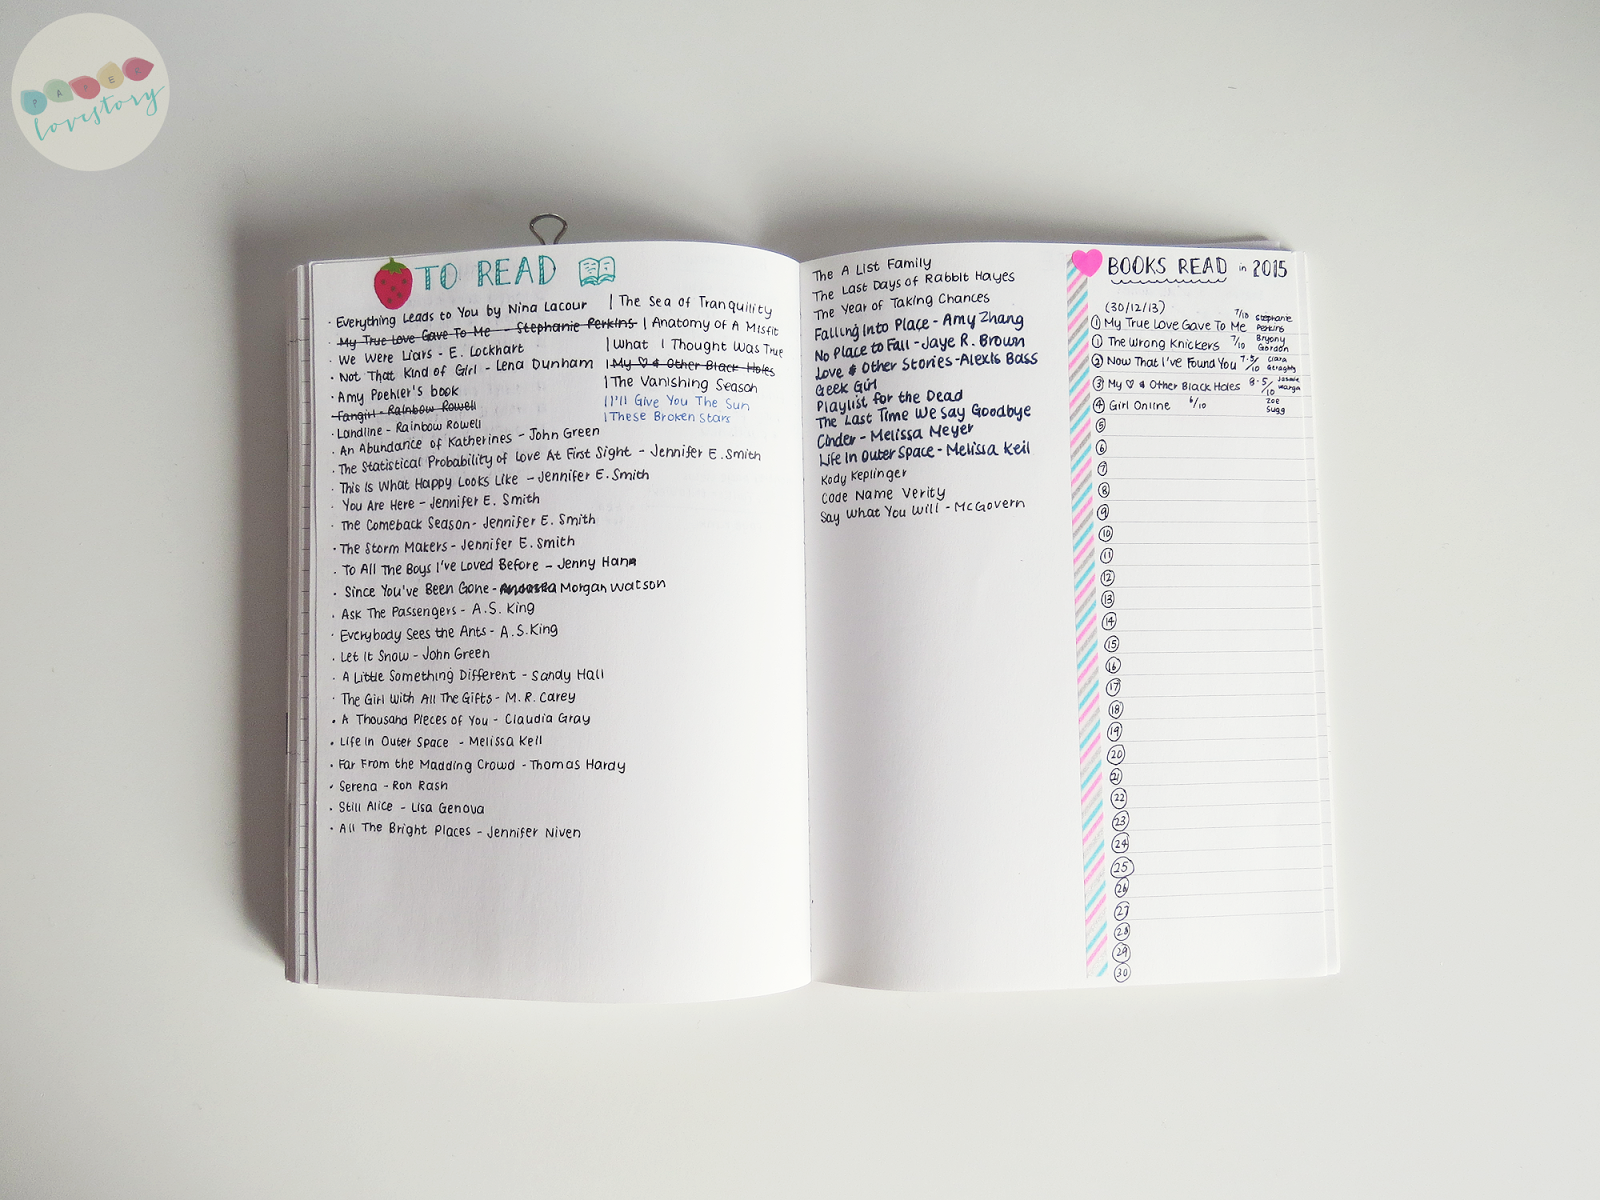 PAPER
lovestory
TO READ
· Everything Leads to You by Nina Lacour
· My True Love Gave To Me - Stephanie Perkins
· We Were Liars - E. Lockhart
· Not That Kind of Girl - Lena Dunham
· Amy Poehler's book
· Fangirl - Rainbow Rowell
· Landline - Rainbow Rowell
· An Abundance of Katherines - John Green
· The Statistical Probability of Love At First Sight - Jennifer E. Smith
· This Is What Happy Looks Like - Jennifer E. Smith
· You Are Here - Jennifer E. Smith
· The Comeback Season - Jennifer E. Smith
· The Storm Makers - Jennifer E. Smith
· To All The Boys I've Loved Before - Jenny Han
· Since You've Been Gone - Morgan Watson
· Ask The Passengers - A.S. King
· Everybody Sees the Ants - A.S. King
· Let It Snow - John Green
· A Little Something Different - Sandy Hall
· The Girl With All The Gifts - M. R. Carey
· A Thousand Pieces of You - Claudia Gray
· Life In Outer Space - Melissa Keil
· Far From the Madding Crowd - Thomas Hardy
· Serena - Ron Rash
· Still Alice - Lisa Genova
· All The Bright Places - Jennifer Niven
| The Sea of Tranquility
| Anatomy of A Misfit
| What I Thought Was True
| My ♡ & Other Black Holes
| The Vanishing Season
| I'll Give You The Sun
| These Broken Stars
The A List Family
The Last Days of Rabbit Hayes
The Year of Taking Chances
Falling Into Place - Amy Zhang
No Place to Fall - Jaye R. Brown
Love & Other Stories - Alexis Bass
Geek Girl
Playlist for the Dead
The Last Time We Say Goodbye
Cinder - Melissa Meyer
Life In Outer Space - Melissa Keil
Kody Keplinger
Code Name Verity
Say What You Will - McGovern
BOOKS READ in 2015
(30/12/13)
① My True Love Gave To Me 7/10 Stephanie Perkins
① The Wrong Knickers 7/10 Bryony Gordon
② Now That I've Found You 7.5/10 Ciara Geraghty
③ My ♡ & Other Black Holes 8.5/10 Jasmine Warga
④ Girl Online 6/10 Zoe Sugg
⑤
⑥
⑦
⑧
⑨
⑩
⑪
⑫
⑬
⑭
⑮
⑯
⑰
⑱
⑲
⑳
㉑
㉒
㉓
㉔
㉕
㉖
㉗
㉘
㉙
㉚